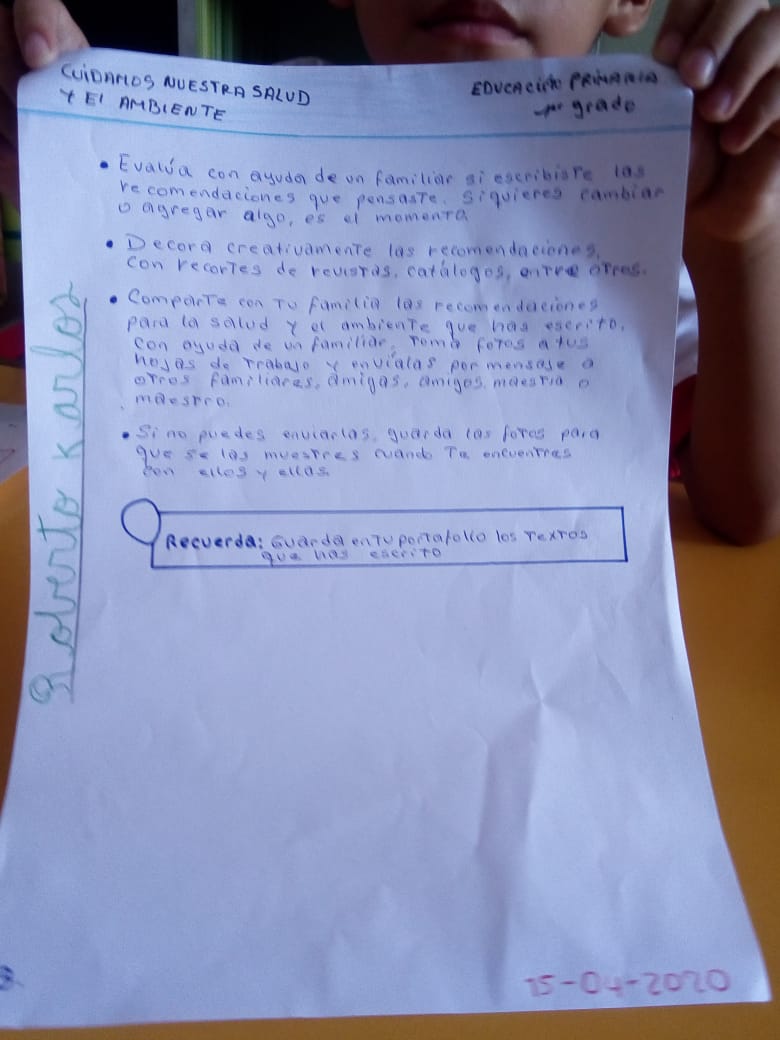 CUIDAMOS NUESTRA SALUD
Y El AMBIENTE
EDUCACIÓN PRIMARIA
1er grado
• Evalúa con ayuda de un familiar si escribiste las
recomendaciones que pensaste. Siquieres cambiar
o agregar algo, es el momento
• Decora creativamente las recomendaciones,
con recortes de revistas, catálogos, entre otros.
• Comparte con tu familia las recomendaciones
para la salud y el ambiente que has escrito.
con ayuda de un familiar, toma fotos a tus
hojas de trabajo y envíalas por mensaje a
otros familiares, amigas, amigos, maestra o
maestro.
• Si no puedes enviarlas, guarda las fotos para
que se las muestres cuando te encuentres
con ellos y ellas.
Recuerda: Guarda en tu portafolio los textos
que has escrito
Roberto Karlos
15-04-2020